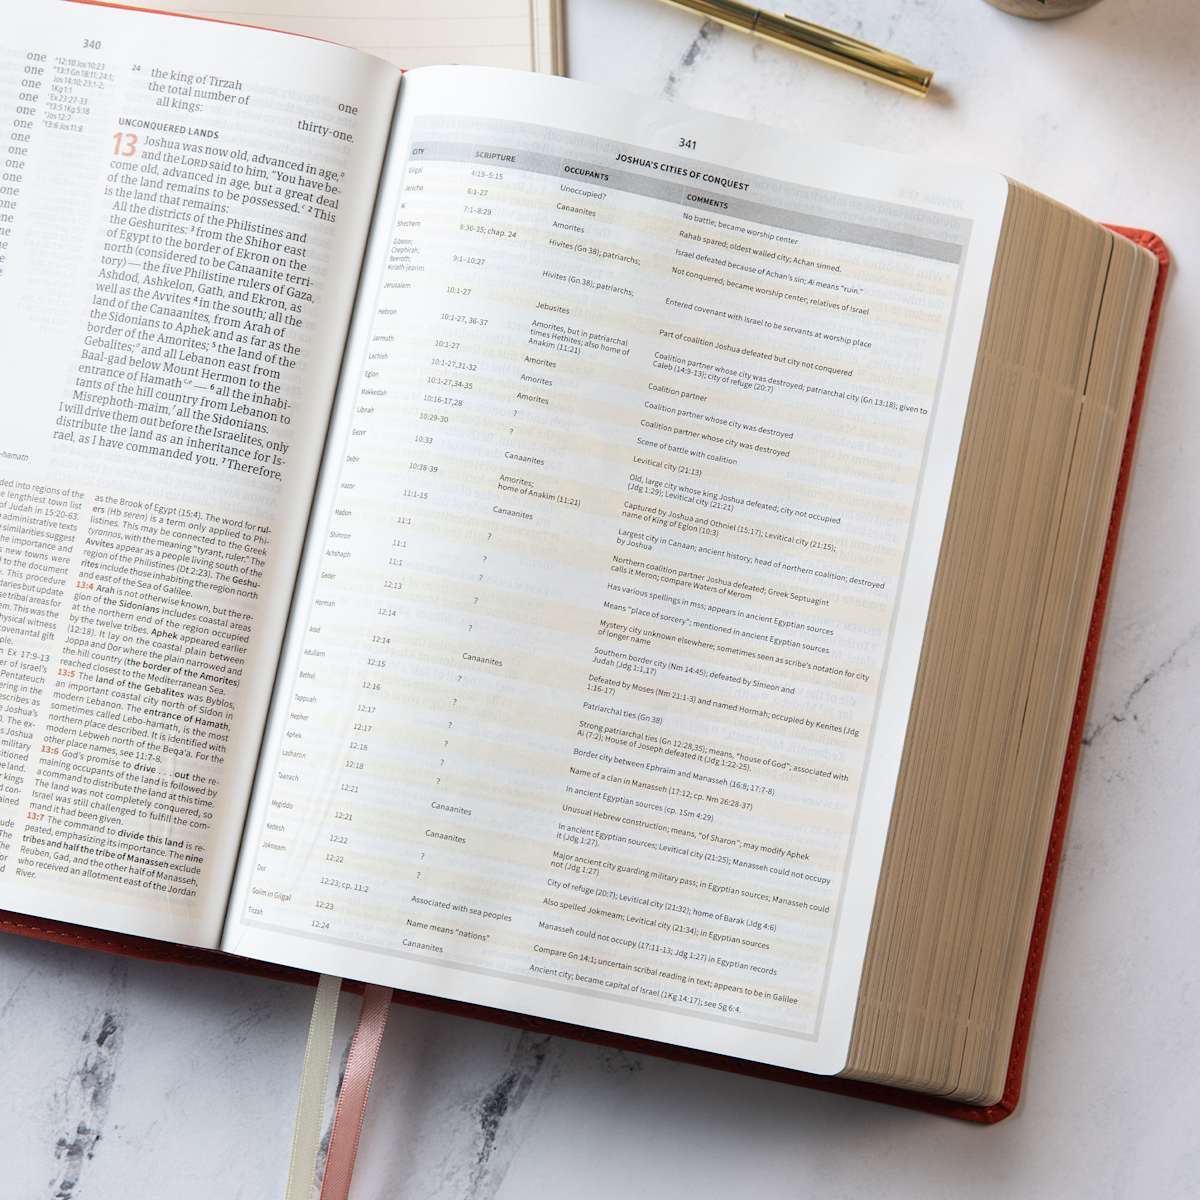 340
one
one
one
one
one
one
one
one
one
one
one
one
one
one
ᵃ12:10 Jos 10:23
ᵇ13:1 Gn 18:11; 24:1;
Jos 14:10; 23:1-2;
1Kg 1:1
ᶜEx 23:27-33
ᵈ13:5 1Kg 5:18
ᵉJos 12:7
ᶠ13:6 Jos 11:8
24 the king of Tirzah one
the total number of
all kings: thirty-one.
UNCONQUERED LANDS
13 Joshua was now old, advanced in age,
and the LORD said to him, "You have be-
come old, advanced in age, but a great deal
of the land remains to be possessed. ² This
is the land that remains:
All the districts of the Philistines and
the Geshurites: ³ from the Shihor east
of Egypt to the border of Ekron on the
north (considered to be Canaanite terri-
tory) — the five Philistine rulers of Gaza,
Ashdod, Ashkelon, Gath, and Ekron, as
well as the Avvites ⁴ in the south; all the
land of the Canaanites, from Arah of
the Sidonians to Aphek and as far as the
border of the Amorites; ⁵ the land of the
Gebalites; and all Lebanon east from
Baal-gad below Mount Hermon to the
entrance of Hamath — ⁶ all the inhabi-
tants of the hill country from Lebanon to
Misrephoth-maim, all the Sidonians.
I will drive them out before the Israelites, only
distribute the land as an inheritance for Is-
rael, as I have commanded you. ⁷ Therefore,
-hamath
ded into regions of the
e lengthiest town list
of Judah in 15:20-63.
administrative texts
similarities suggest
he importance and
s new towns were
to the document
This procedure
daries but update
se tribal areas for
m. This was the
hysical witness
ovenantal gift
ple.
n Ex 17:9-13
er of Israel's
Pentateuch
ering in the
escribes as
as the Brook of Egypt (15:4). The word for rul-
ers (Hb seren) is a term only applied to Phi-
listines. This may be connected to the Greek
tyrannos, with the meaning "tyrant, ruler." The
Avvites appear as a people living south of the
region of the Philistines (Dt 2:23). The Geshu-
rites include those inhabiting the region north
and east of the Sea of Galilee.
13:4 Arah is not otherwise known, but the re-
gion of the Sidonians includes coastal areas
at the northern end of the region occupied
by the twelve tribes. Aphek appeared earlier
(12:18). It lay on the coastal plain between
Joppa and Dor where the plain narrowed and
the hill country (the border of the Amorites)
reached closest to the Mediterranean Sea.
13:5 The land of the Gebalites was Byblos,
an important coastal city north of Sidon in
modern Lebanon. The entrance of Hamath,
sometimes called Lebo-hamath, is the most
northern place described. It is identified with
modern Lebweh north of the Beqa'a. For the
other place names, see 11:7-8.
13:6 God's promise to drive . . . out the re-
maining occupants of the land is followed by
a command to distribute the land at this time.
The land was not completely conquered, so
Israel was still challenged to fulfill the com-
mand it had been given.
13:7 The command to divide this land is re-
peated, emphasizing its importance. The nine
tribes and half the tribe of Manasseh exclude
Reuben, Gad, and the other half of Manasseh,
who received an allotment east of the Jordan
River.
341
JOSHUA'S CITIES OF CONQUEST
CITY SCRIPTURE OCCUPANTS COMMENTS
Gilgal 4:19–5:15 Unoccupied? No battle; became worship center
Jericho 6:1-27 Canaanites Rahab spared; oldest walled city; Achan sinned.
Ai 7:1–8:29 Amorites Israel defeated because of Achan's sin; Ai means "ruin."
Shechem 8:30-35; chap. 24 Hivites (Gn 38), patriarchs; Not conquered; became worship center, relatives of Israel
Gibeon;
Chephirah;
Beeroth;
Kiriath-jearim 9:1–10:27 Hivites (Gn 38), patriarchs; Entered covenant with Israel to be servants at worship place
Jerusalem 10:1-27 Jebusites Part of coalition Joshua defeated but city not conquered
Hebron 10:1-27, 36-37 Amorites, but in patriarchal
times Hethites; also home of
Anakim (11:21) Coalition partner whose city was destroyed; patriarchal city (Gn 13:18); given to
Caleb (14:9-13); city of refuge (20:7)
Jarmuth 10:1-27 Amorites Coalition partner
Lachish 10:1-27,31-32 Amorites Coalition partner whose city was destroyed
Eglon 10:1-27,34-35 Amorites Coalition partner whose city was destroyed
Makkedah 10:16-17,28 ? Scene of battle with coalition
Libnah 10:29-30 ? Levitical city (21:13)
Gezer 10:33 Canaanites Old, large city whose king Joshua defeated; city not occupied
(Jdg 1:29); Levitical city (21:21)
Debir 10:38-39 Amorites;
home of Anakim (11:21) Captured by Joshua and Othniel (15:17); Levitical city (21:15);
name of King of Eglon (10:3)
Hazor 11:1-15 Canaanites Largest city in Canaan; ancient history; head of northern coalition; destroyed
by Joshua
Madon 11:1 ? Northern coalition partner Joshua defeated; Greek Septuagint
calls it Meron; compare Waters of Merom
Shimron 11:1 ? Has various spellings in mss; appears in ancient Egyptian sources
Achshaph 11:1 ? Means "place of sorcery"; mentioned in ancient Egyptian sources
Geder 12:13 ? Mystery city unknown elsewhere; sometimes seen as scribe's notation for city
of longer name
Hormah 12:14 ? Southern border city (Nm 14:45); defeated by Simeon and
Judah (Jdg 1:1,17)
Arad 12:14 Canaanites Defeated by Moses (Nm 21:1-3) and named Hormah; occupied by Kenites (Jdg
1:16-17)
Adullam 12:15 ? Patriarchal ties (Gn 38)
Bethel 12:16 ? Strong patriarchal ties (Gn 12:28,35); means, "house of God"; associated with
Ai (7:2); House of Joseph defeated it (Jdg 1:22-25).
Tappuah 12:17 ? Border city between Ephraim and Manasseh (16:8; 17:7-8)
Hepher 12:17 ? Name of a clan in Manasseh (17:12, cp. Nm 26:28-37)
Aphek 12:18 ? In ancient Egyptian sources (cp. 1Sm 4:29)
Lasharon 12:18 ? Unusual Hebrew construction; means, "of Sharon"; may modify Aphek
Taanach 12:21 Canaanites In ancient Egyptian sources; Levitical city (21:25); Manasseh could not occupy
it (Jdg 1:27).
Megiddo 12:21 Canaanites Major ancient city guarding military pass; in Egyptian sources; Manasseh could
not (Jdg 1:27)
Kedesh 12:22 ? City of refuge (20:7); Levitical city (21:32); home of Barak (Jdg 4:6)
Jokneam 12:22 ? Also spelled Jokmeam; Levitical city (21:34); in Egyptian sources
Dor 12:23; cp. 11:2 Associated with sea peoples Manasseh could not occupy (17:11-13; Jdg 1:27) in Egyptian records
Goiim in Gilgal 12:23 Name means "nations" Compare Gn 14:1; uncertain scribal reading in text; appears to be in Galilee
Tirzah 12:24 Canaanites Ancient city; became capital of Israel (1Kg 14:17); see Sg 6:4.